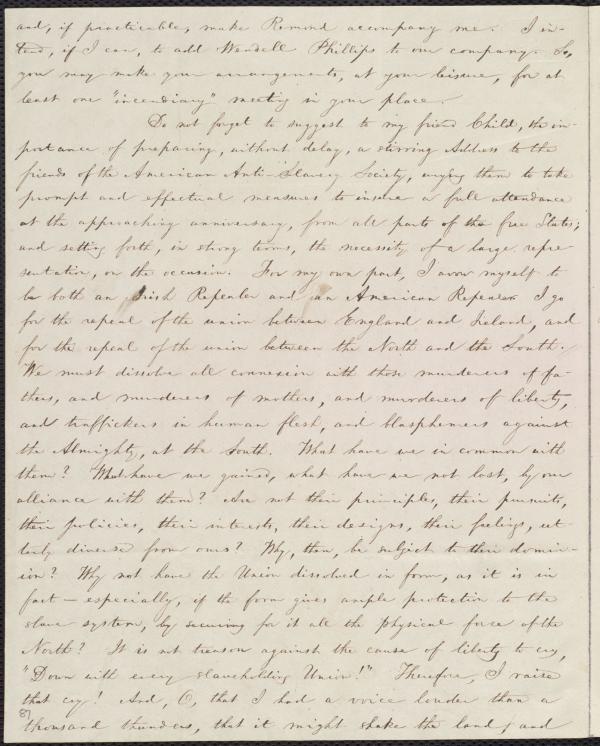 and, if practicable, make Remond accompany me. I in-
tend, if I can, to add Wendell Phillips to our company. So,
you may make your arrangements, at your leisure, for at
least one "incendiary" meeting in your place.
Do not forget to suggest to my friend Child, the im-
portance of preparing, without delay, a stirring Address to the
friends of the American Anti-Slavery Society, urging them to take
prompt and effectual measures to insure a full attendance
at the approaching anniversary, from all parts of the free States;
and setting forth, in strong terms, the necessity of a large repre-
sentation, on the occasion. For my own part, I avow myself to
be both an Irish Repealer and an American Repealer. I go
for the repeal of the union between England and Ireland, and
for the repeal of the union between the North and the South.
We must dissolve all connexion with those murderers of fa-
thers, and murderers of mothers, and murderers of liberty,
and traffickers in human flesh, and blasphemers against
the Almighty, at the South. What have we in common with
them? What have we gained, what have we not lost, by our
alliance with them? Are not their principles, their pursuits,
their policies, their interests, their designs, their feelings, ut-
terly diverse from ours? Why, then, be subject to their domin-
ion? Why not have the Union dissolved in form, as it is in
fact — especially, if the form gives ample protection to the
slave system, by securing for it all the physical force of the
North? It is not treason against the cause of liberty to cry,
"Down with every slaveholding Union!" Therefore, I raise
that cry! And, O, that I had a voice louder than a
thousand thunders, that it might shake the land, and